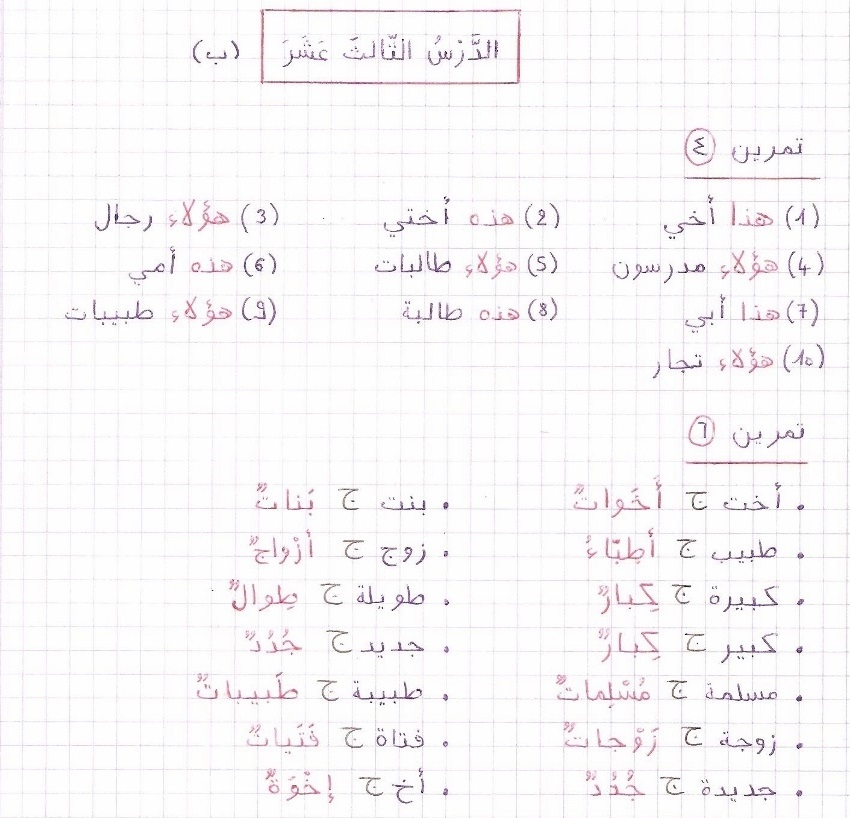 الدَّرْسُ الثَّالِثَ عَشَرَ (ب)
تمرين ٤
(1) هذا أخي (2) هذه أختي (3) هؤلاء رجال
(4) هؤلاء مدرسون (5) هؤلاء طالبات (6) هذه أمي
(7) هذا أبي (8) هذه طالبة (9) هؤلاء طبيبات
(10) هؤلاء تجار
تمرين ٦
• أخت ج أَخَواتٌ • بنت ج بَناتٌ
• طبيب ج أَطِبّاءُ • زوج ج أزْواجٌ
• كبيرة ج كِبارٌ • طويلة ج طِوالٌ
• كبير ج كِبارٌ • جديد ج جُدُدٌ
• مسلمة ج مُسْلِماتٌ • طبيبة ج طَبيباتٌ
• زوجة ج زَوْجاتٌ • فتاة ج فَتَياتٌ
• جديدة ج جُدُدٌ • أخ ج إخْوَةٌ